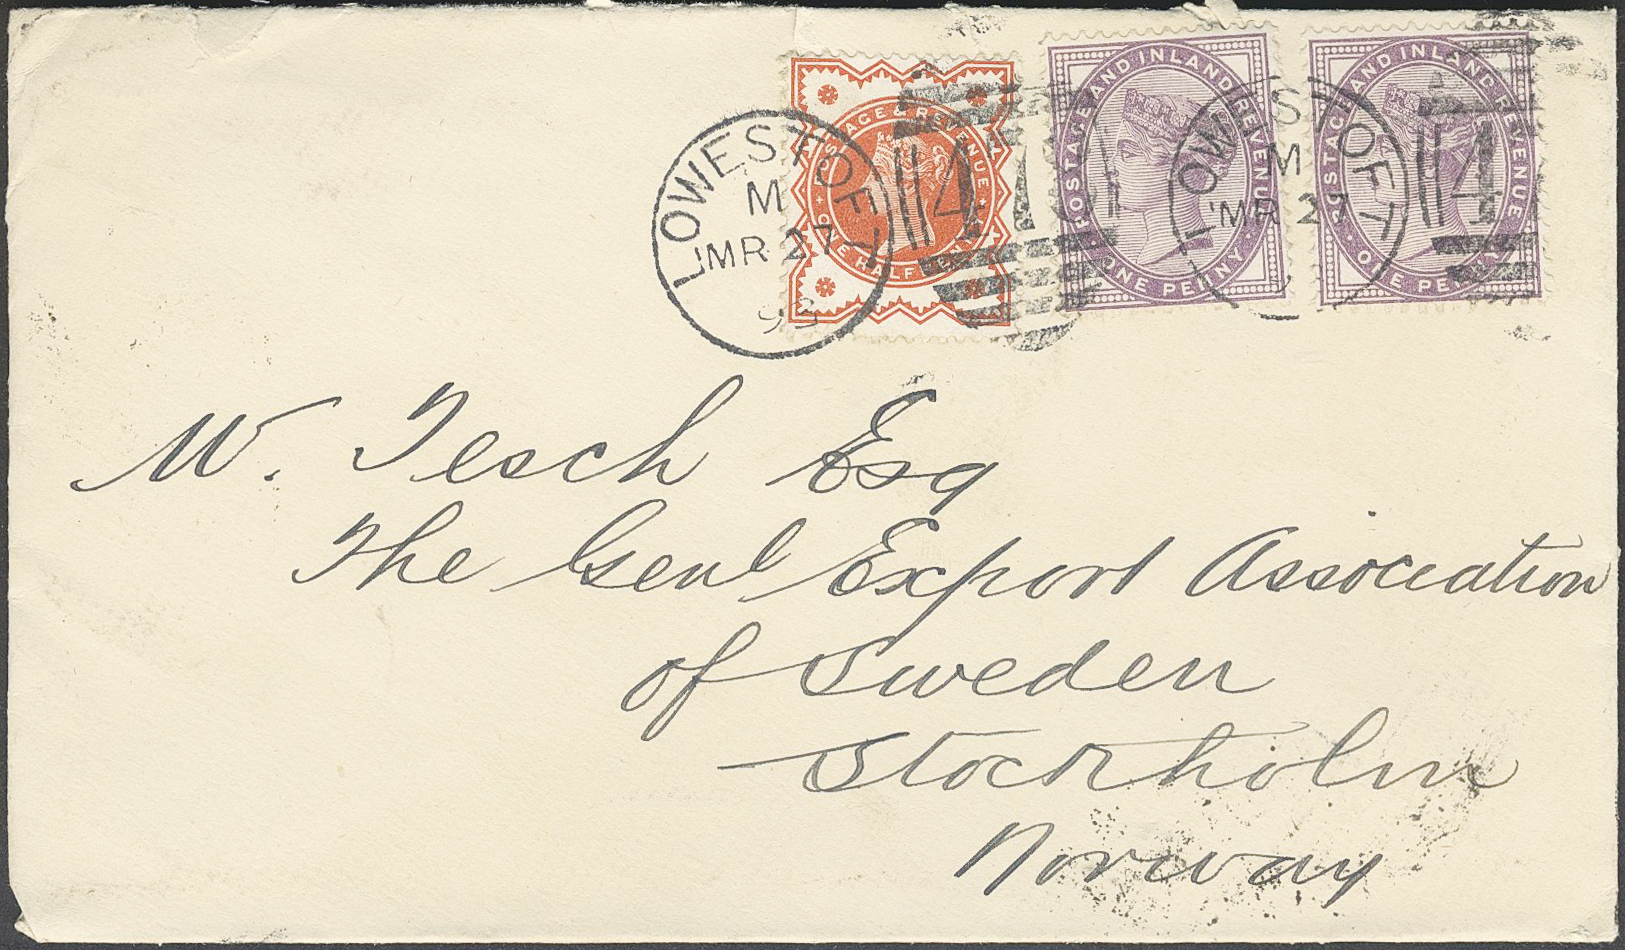 LOWESTOFT
M
MR 27
93
POSTAGE & REVENUE
ONE HALFPENNY
POSTAGE AND INLAND REVENUE
ONE PENNY
LOWESTOFT
M
MR 27
POSTAGE AND INLAND REVENUE
ONE PENNY
W. Tesch Esq
The Genl Export Association
of Sweden
Stockholm
Norway